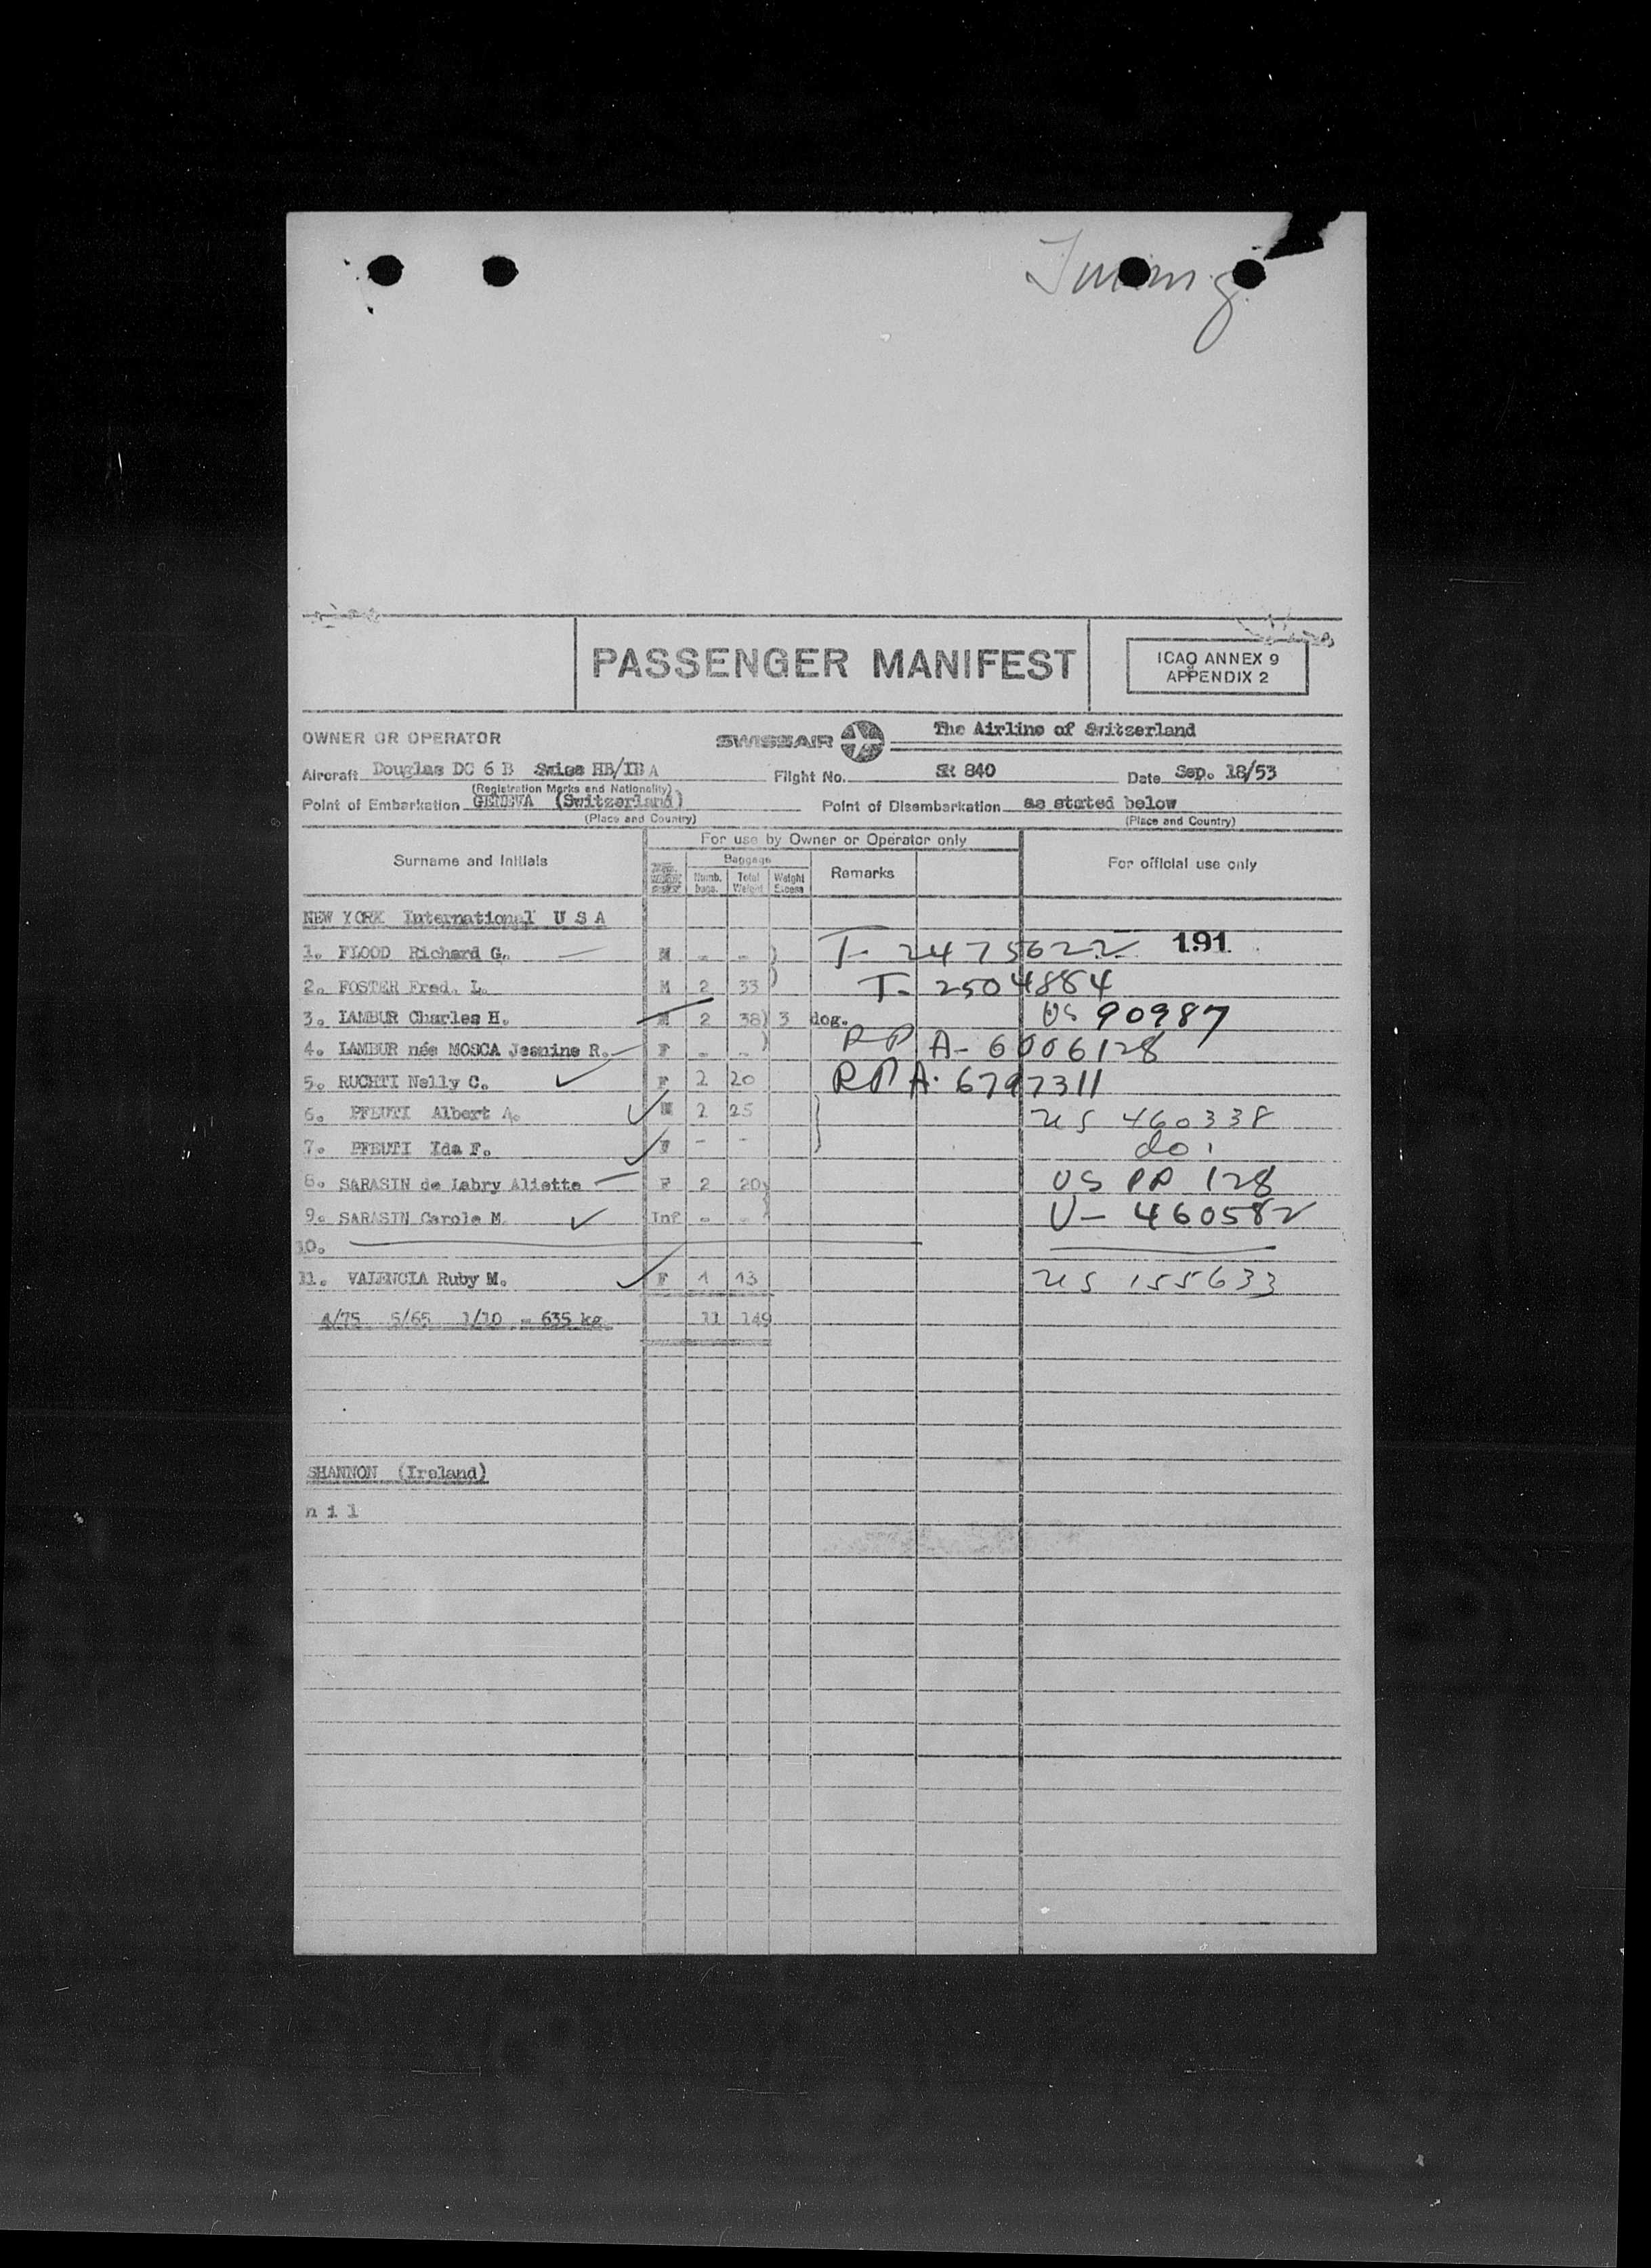 PASSENGER MANIFEST
ICAO ANNEX 9
APPENDIX 2
OWNER OR OPERATOR SWISSAIR The Airline of Switzerland
Aircraft Douglas DC 6 B Swiss HB/IBA Flight No. SR 840 Date Sep. 18/53
(Registration Marks and Nationality)
Point of Embarkation GENEVA (Switzerland) Point of Disembarkation as stated below
(Place and Country) (Place and Country)
For use by Owner or Operator only
Surname and Initials Baggage Remarks For official use only
Numb. bags. Total Weight Weight Excess
NEW YORK International U S A
1. FLOOD Richard G. M - - ) T- 2475622 191
2. FOSTER Fred. L. M 2 33 ) T- 2504884
3. LAMBUR Charles H. M 2 38) 3 dog. US 90987
4. LAMBUR née MOSCA Jeannine R. F - - ) RP A- 6006128
5. RUCHTI Nelly C. F 2 20 RP A- 6797311
6. PFEUTI Albert A. M 2 25 US 460338
7. PFEUTI Ida F. F - - do.
8. SARASIN de Labry Aliette F 2 20) US PP 128
9. SARASIN Carole M. Inf - - ) V- 460582
10.
11. VALENCIA Ruby M. F 1 13 US 155633
4/75 5/65 1/10 = 635 kg 11 149
SHANNON (Ireland)
n i l